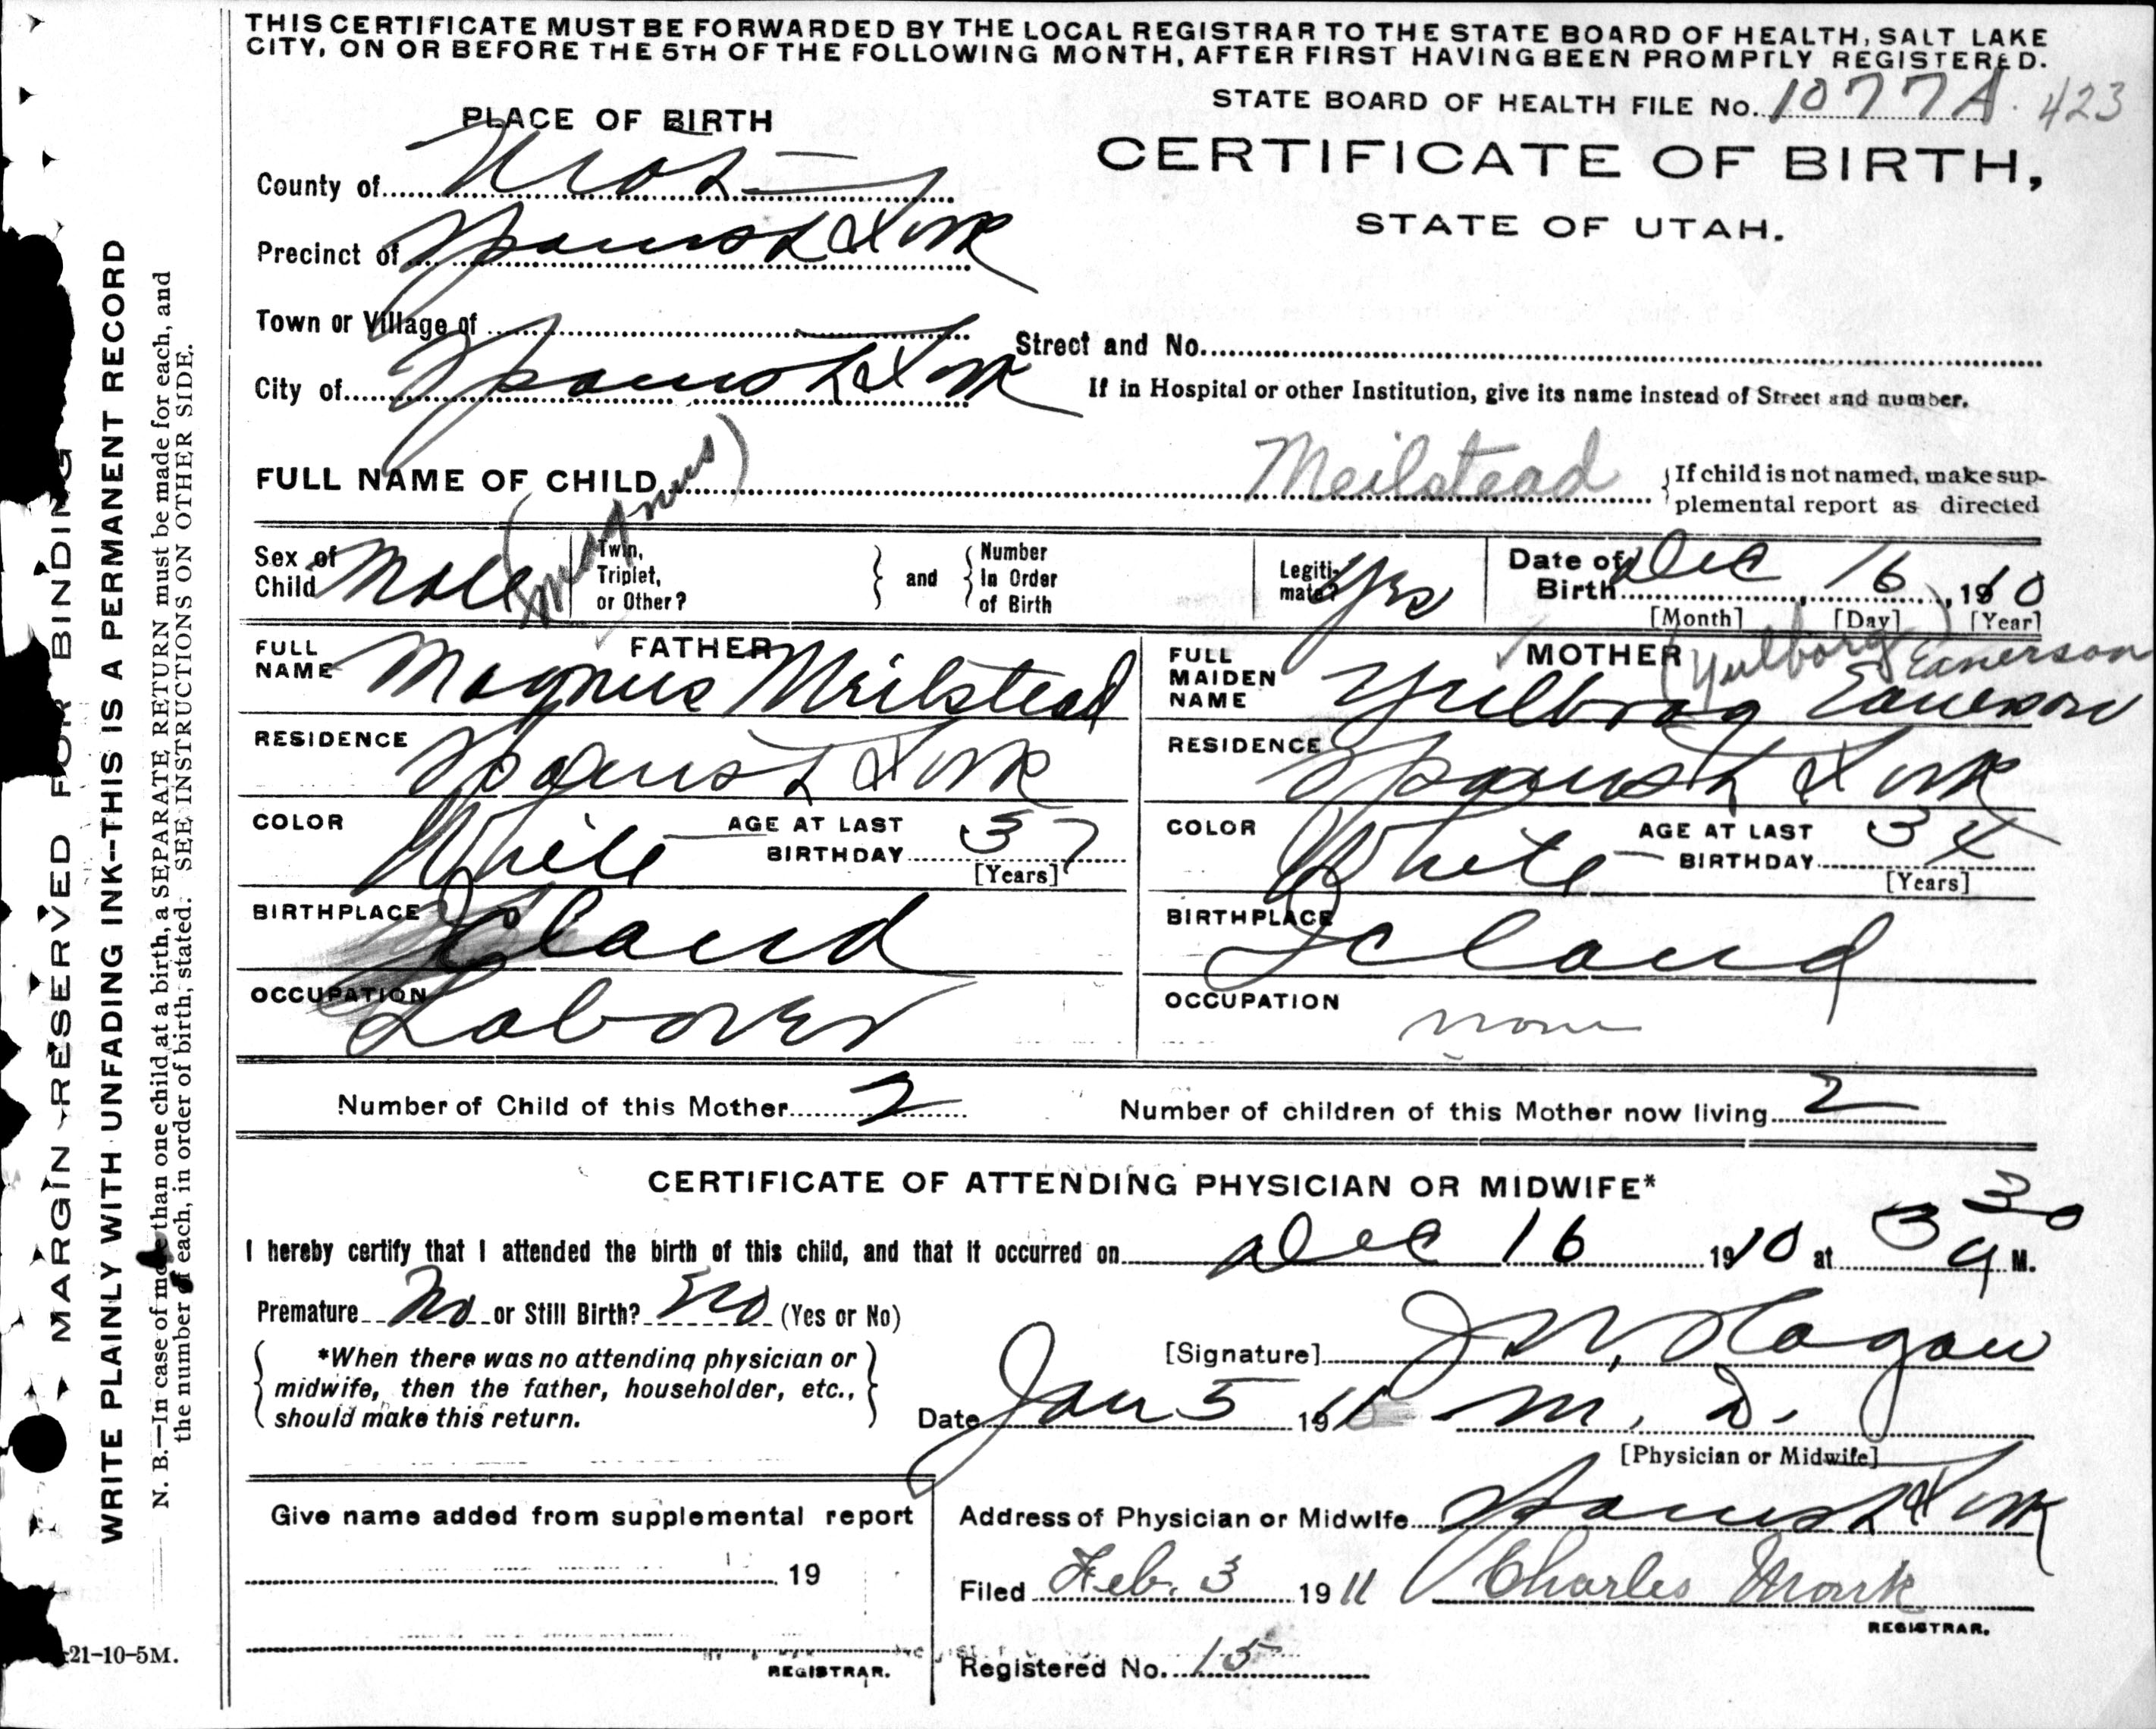 THIS CERTIFICATE MUST BE FORWARDED BY THE LOCAL REGISTRAR TO THE STATE BOARD OF HEALTH, SALT LAKE
CITY, ON OR BEFORE THE 5TH OF THE FOLLOWING MONTH, AFTER FIRST HAVING BEEN PROMPTLY REGISTERED.
STATE BOARD OF HEALTH FILE No. 1077A. 423
PLACE OF BIRTH
CERTIFICATE OF BIRTH,
STATE OF UTAH.
County of
Precinct of Spanish Fork
Town or Village of
Street and No.
City of Spanish Fork
If in Hospital or other Institution, give its name instead of Street and number.
FULL NAME OF CHILD Meilstead
(Magnus)
If child is not named, make sup-
plemental report as directed
Sex of Child Male
Twin, Triplet, or Other?
and
Number In Order of Birth
Legiti-mate? Yes
Date of Birth Dec 16, 1910
[Month] [Day] [Year]
FATHER
FULL NAME Magnus Meilstead
RESIDENCE Spanish Fork
COLOR White
AGE AT LAST BIRTHDAY 37
[Years]
BIRTHPLACE Icland
OCCUPATION Laborer
MOTHER
(Yulborg) Einerson
FULL MAIDEN NAME Yulbrog
RESIDENCE Spanish Fork
COLOR White
AGE AT LAST BIRTHDAY 34
[Years]
BIRTHPLACE Icland
OCCUPATION none
Number of Child of this Mother 2
Number of children of this Mother now living 2
CERTIFICATE OF ATTENDING PHYSICIAN OR MIDWIFE*
I hereby certify that I attended the birth of this child, and that it occurred on Dec 16 1910 at 3 30 a M.
Premature No or Still Birth? No (Yes or No)
*When there was no attending physician or
midwife, then the father, householder, etc.,
should make this return.
[Signature] J W Hagan
Date Jan 5 1911 M. D.
[Physician or Midwife]
Give name added from supplemental report
19
REGISTRAR.
Address of Physician or Midwife Spanish Fork
Filed Feb. 3 1911 Charles Monk
REGISTRAR.
Registered No. 15
MARGIN RESERVED FOR BINDING
WRITE PLAINLY WITH UNFADING INK--THIS IS A PERMANENT RECORD
N. B.—In case of more than one child at a birth, a SEPARATE RETURN must be made for each, and
the number of each, in order of birth, stated. SEE INSTRUCTIONS ON OTHER SIDE.
21-10-5M.